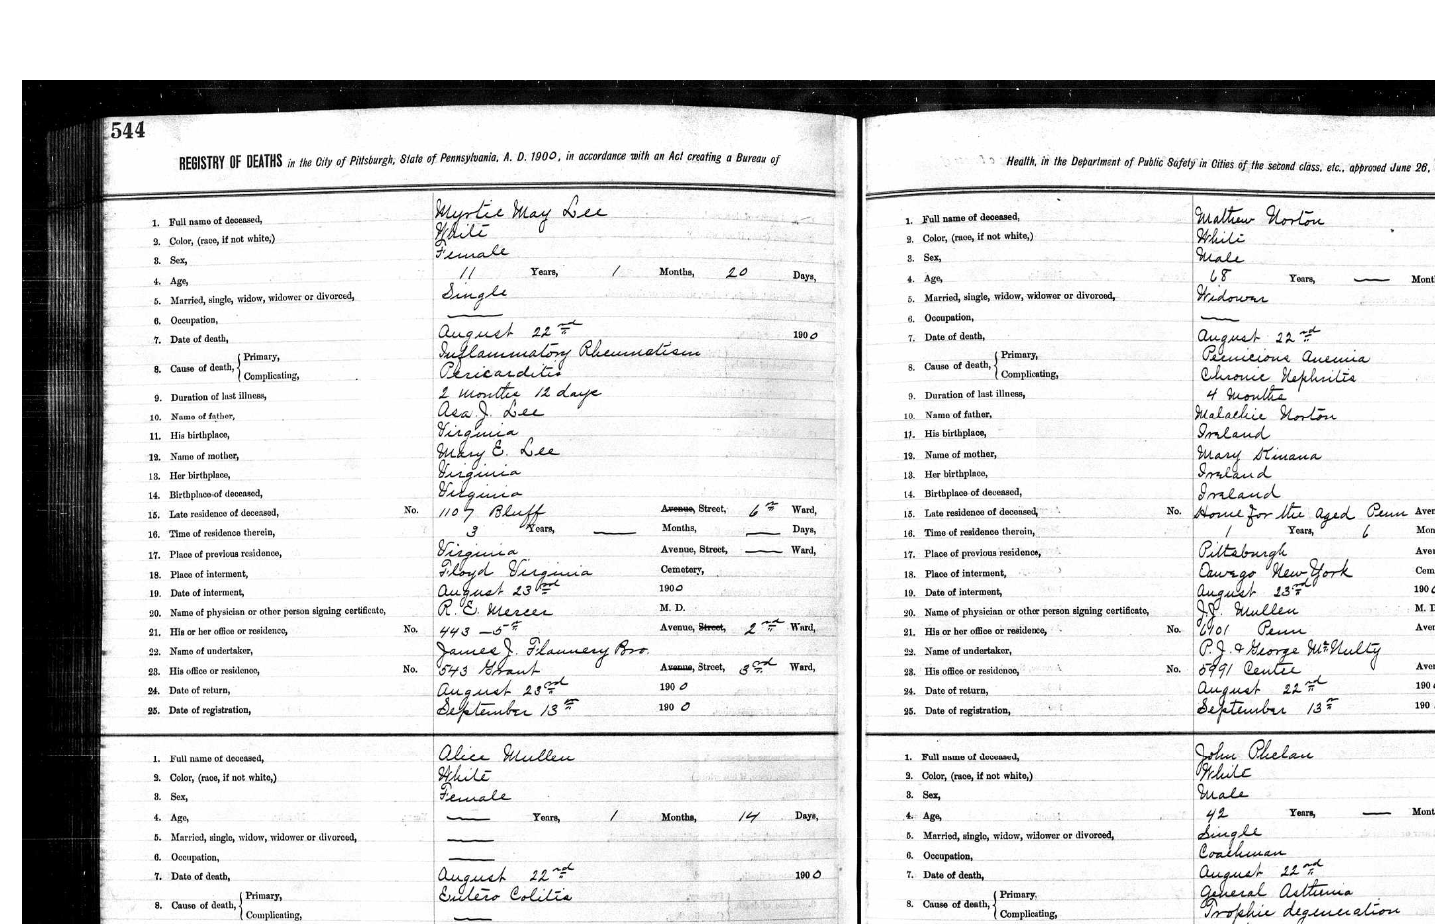 544
REGISTRY OF DEATHS in the City of Pittsburgh, State of Pennsylvania, A. D. 1900, in accordance with an Act creating a Bureau of
1. Full name of deceased, Myrtie May Lee
2. Color, (race, if not white,) White
3. Sex, Female
4. Age, 11 Years, 1 Months, 20 Days,
5. Married, single, widow, widower or divorced, Single
6. Occupation, —
7. Date of death, August 22nd 1900
8. Cause of death, { Primary, Inflammatory Rheumatism
Complicating, Pericarditis
9. Duration of last illness, 2 months 12 days
10. Name of father, Asa J. Lee
11. His birthplace, Virginia
12. Name of mother, Mary E. Lee
13. Her birthplace, Virginia
14. Birthplace of deceased, Virginia
15. Late residence of deceased, No. 1107 Bluff Avenue, Street, 6th Ward,
16. Time of residence therein, 3 Years, — Months, — Days,
17. Place of previous residence, Virginia Avenue, Street, — Ward,
18. Place of interment, Floyd Virginia Cemetery,
19. Date of interment, August 23rd 1900
20. Name of physician or other person signing certificate, R. E. Mercer M. D.
21. His or her office or residence, No. 443 - 5th Avenue, Street, 2nd Ward,
22. Name of undertaker, James J. Flannery Bro.
23. His office or residence, No. 543 Grant Avenue, Street, 3rd Ward,
24. Date of return, August 23rd 1900
25. Date of registration, September 13th 1900
1. Full name of deceased, Alice Mullen
2. Color, (race, if not white,) White
3. Sex, Female
4. Age, — Years, 1 Months, 14 Days,
5. Married, single, widow, widower or divorced, —
6. Occupation, —
7. Date of death, August 22nd 1900
8. Cause of death, { Primary, Entero Colitis
Complicating, —
Health, in the Department of Public Safety in Cities of the second class, etc., approved June 26,
1. Full name of deceased, Mathew Norton
2. Color, (race, if not white,) White
3. Sex, Male
4. Age, 68 Years, — Mont
5. Married, single, widow, widower or divorced, Widower
6. Occupation, —
7. Date of death, August 22nd
8. Cause of death, { Primary, Pernicious Anemia
Complicating, Chronic Nephritis
9. Duration of last illness, 4 Months
10. Name of father, Malachie Norton
11. His birthplace, Ireland
12. Name of mother, Mary
13. Her birthplace, Ireland
14. Birthplace of deceased, Ireland
15. Late residence of deceased, No. Home for the Aged Penn Aven
16. Time of residence therein, 1 Years, 6 Mon
17. Place of previous residence, Pittsburgh Aven
18. Place of interment, Oswego New York Cem
19. Date of interment, August 23rd 190
20. Name of physician or other person signing certificate, J.J. Mullen M. D
21. His or her office or residence, No. 6901 Penn Aven
22. Name of undertaker, P.J. & George McNulty
23. His office or residence, No. 5991 Centre Aven
24. Date of return, August 22nd 190
25. Date of registration, September 13th 190
1. Full name of deceased, John Phelan
2. Color, (race, if not white,) White
3. Sex, Male
4. Age, 42 Years, — Mont
5. Married, single, widow, widower or divorced, Single
6. Occupation, Coachman
7. Date of death, August 22nd
8. Cause of death, { Primary, General Asthenia
Complicating, Trophic degeneration